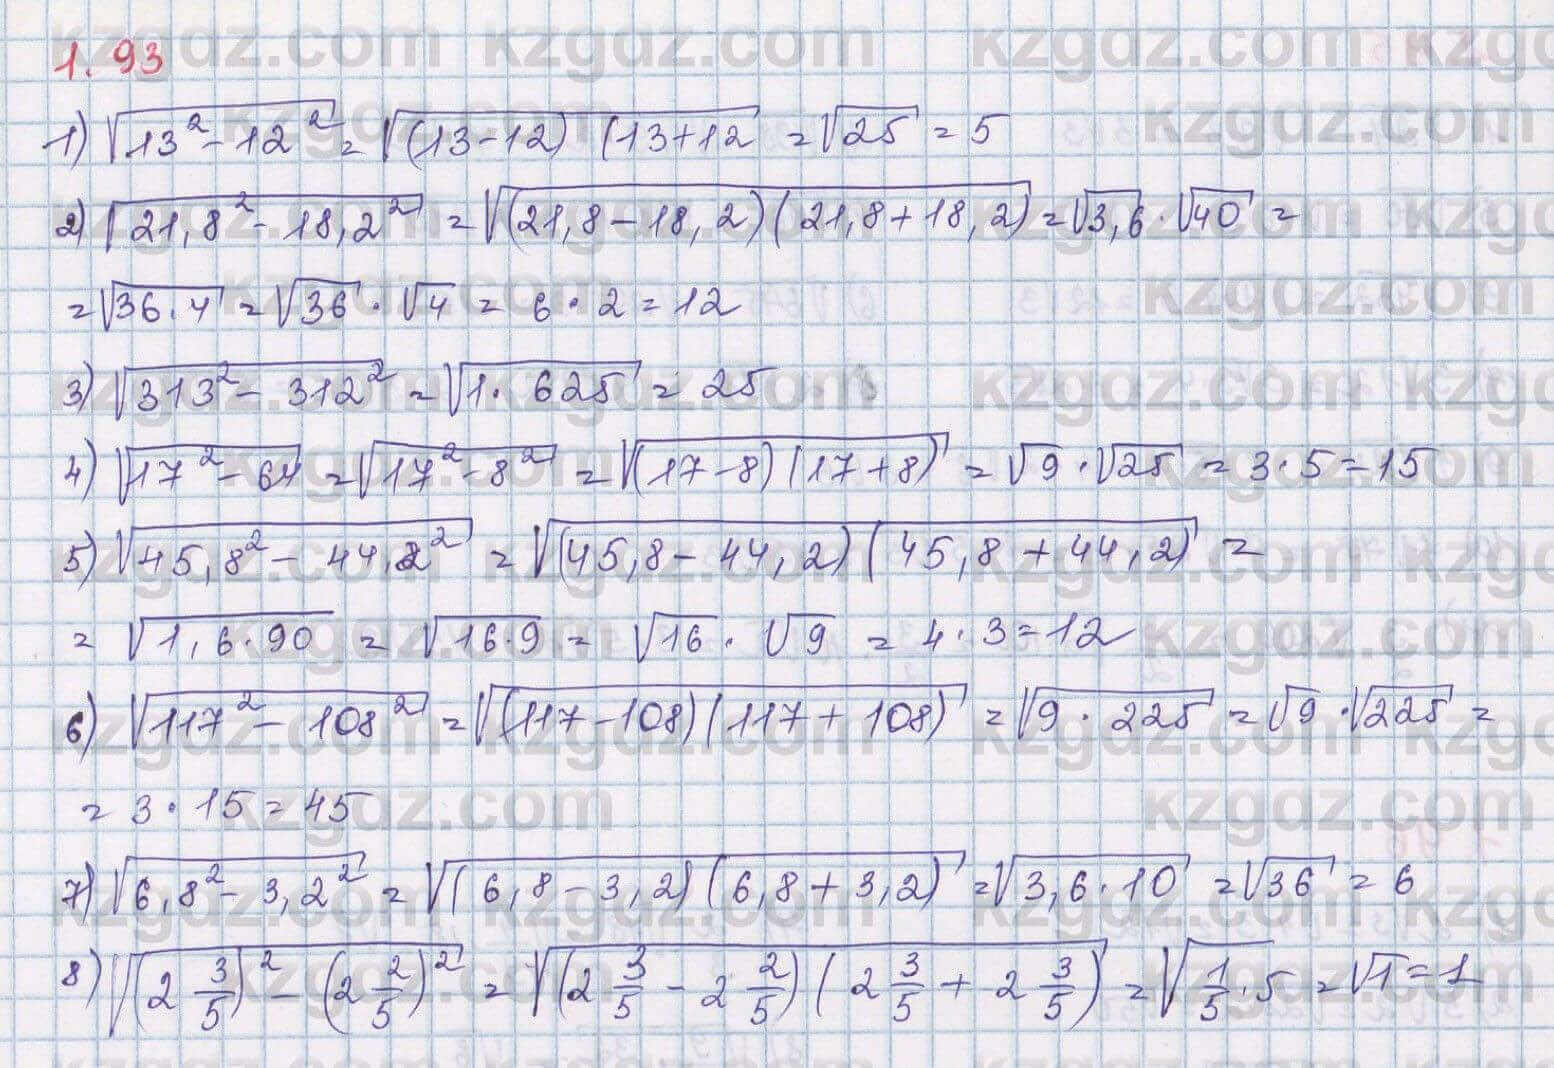 1.93
1) √(13² - 12²) = √((13-12) (13+12 = √25 = 5
2) √(21,8² - 18,2²) = √((21,8 - 18,2)(21,8 + 18,2)) = √3,6 · √40 =
= √(36·4) = √36 · √4 = 6 · 2 = 12
3) √(313² - 312²) = √(1 · 625) = 25
4) √(17² - 64) = √(17² - 8²) = √((17-8)(17+8)) = √9 · √25 = 3·5=15
5) √(45,8² - 44,2²) = √((45,8 - 44,2)(45,8 + 44,2)) =
= √(1,6·90) = √(16·9) = √16 · √9 = 4·3=12
6) √(117² - 108²) = √((117-108)(117+108)) = √(9 · 225) = √9 · √225 =
= 3 · 15 = 45
7) √(6,8² - 3,2²) = √((6,8 - 3,2)(6,8 + 3,2)) = √(3,6·10) = √36 = 6
8) √((2 3/5)² - (2 2/5)²) = √((2 3/5 - 2 2/5)(2 3/5 + 2 3/5)) = √(1/5 · 5) = √1 = 1
kzgdz.com